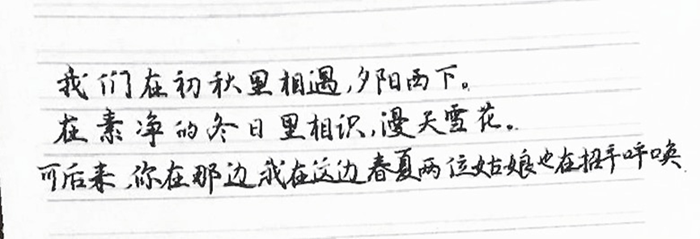 我们在初秋里相遇,夕阳西下。
在素净的冬日里相识,漫天雪花。
可后来,你在那边我在这边春夏两位姑娘也在招手呼唤